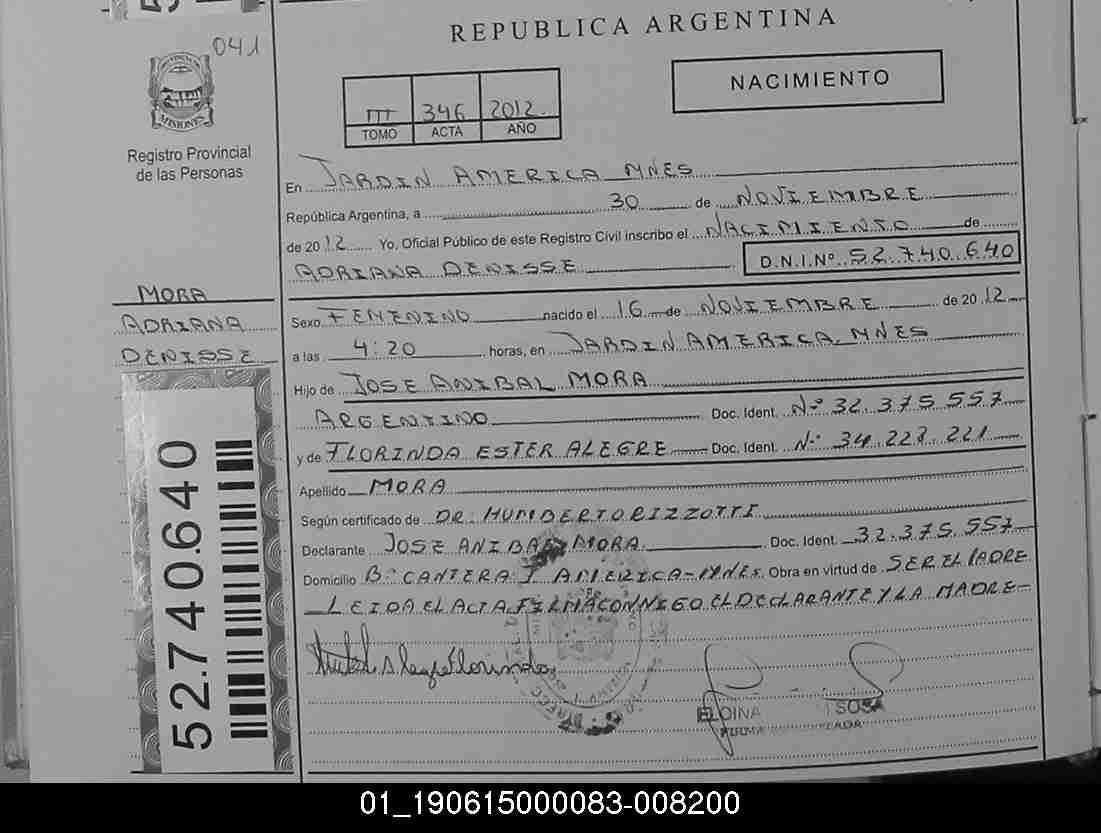 041
REPUBLICA ARGENTINA
NACIMIENTO
III 346 2012
TOMO ACTA AÑO
MISIONES
Registro Provincial
de las Personas
En JARDIN AMERICA MNES
República Argentina, a 30 de NOVIEMBRE
de 2012 Yo, Oficial Público de este Registro Civil inscribo el NACIMIENTO de
ADRIANA DENISSE D.N.I.Nº 52.740.640
MORA
ADRIANA
DENISSE
Sexo FEMENINO nacido el 16 de NOVIEMBRE de 2012
a las 4:20 horas, en JARDIN AMERICA MNES
Hijo de JOSE ANIBAL MORA
ARGENTINO Doc. Ident. Nº 32.375.557
y de FLORINDA ESTER ALEGRE Doc. Ident. Nº 34.227.221
Apellido MORA
Según certificado de DR. HUMBERTO RIZZOTTI
Declarante JOSE ANIBAL MORA Doc. Ident. 32.375.557
Domicilio Bº CANTERA J AMERICA-MNES. Obra en virtud de SER EL PADRE
LEIDA EL ACTA FIRMA CONMIGO EL DECLARANTE Y LA MADRE
Alegre Florinda
ELOINA SOSA
52.740.640
01_190615000083-008200